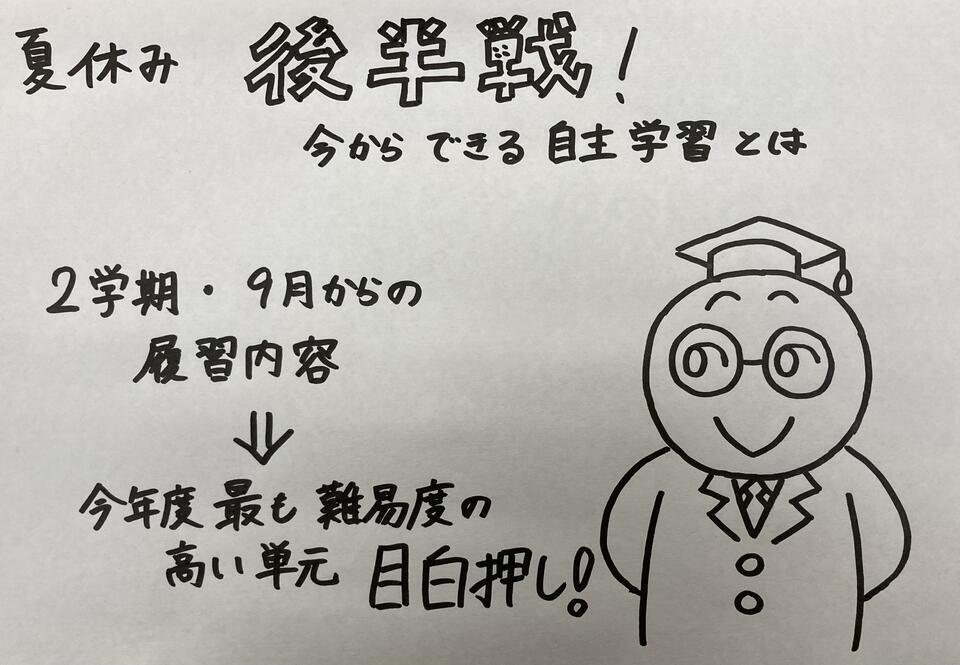 夏休み 後半戦!
今からできる自主学習とは
2学期・9月からの
履習内容
⇓
今年度最も難易度の
高い単元 目白押し!